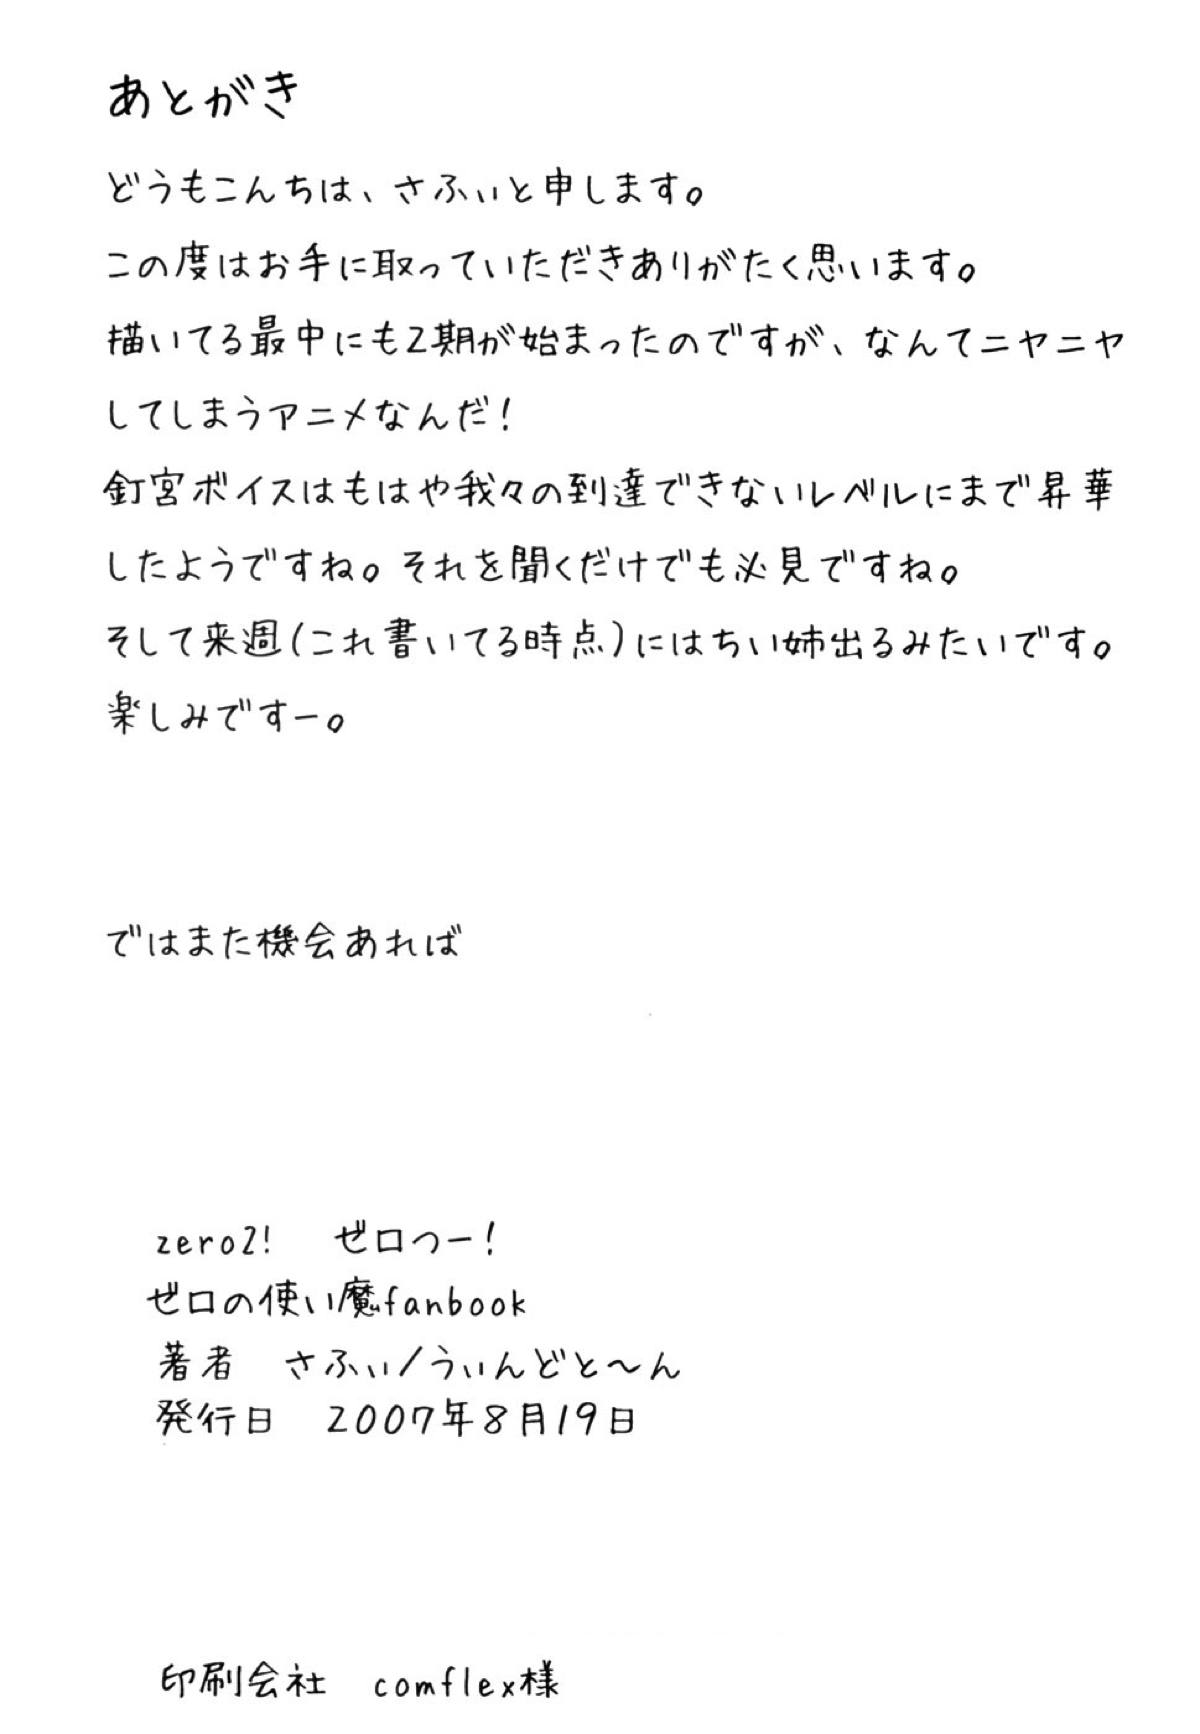 あとがき
どうもこんちは、さふぃと申します。
この度はお手に取っていただきありがたく思います。
描いてる最中にも2期が始まったのですが、なんてニヤニヤ
してしまうアニメなんだ!
釘宮ボイスはもはや我々の到達できないレベルにまで昇華
したようですね。それを聞くだけでも必見ですね。
そして来週(これ書いてる時点)にはちい姉出るみたいです。
楽しみですー。
ではまた機会あれば
zero2! ゼロつー!
ゼロの使い魔fanbook
著者 さふぃ/うぃんどと~ん
発行日 2007年8月19日
印刷会社 comflex様